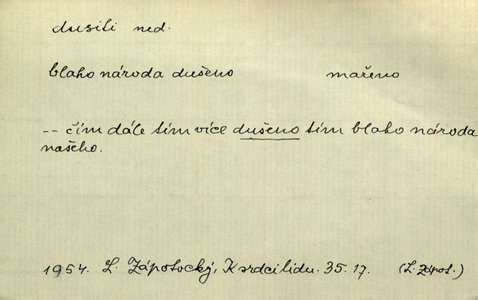 dusiti ned.
blaho národa dušeno mařeno
-- čím dále tím více dušeno tím blaho národa
našeho.
1954. L. Zápotocký, K srdci lidu. 35. 17. (L. Zápot.)